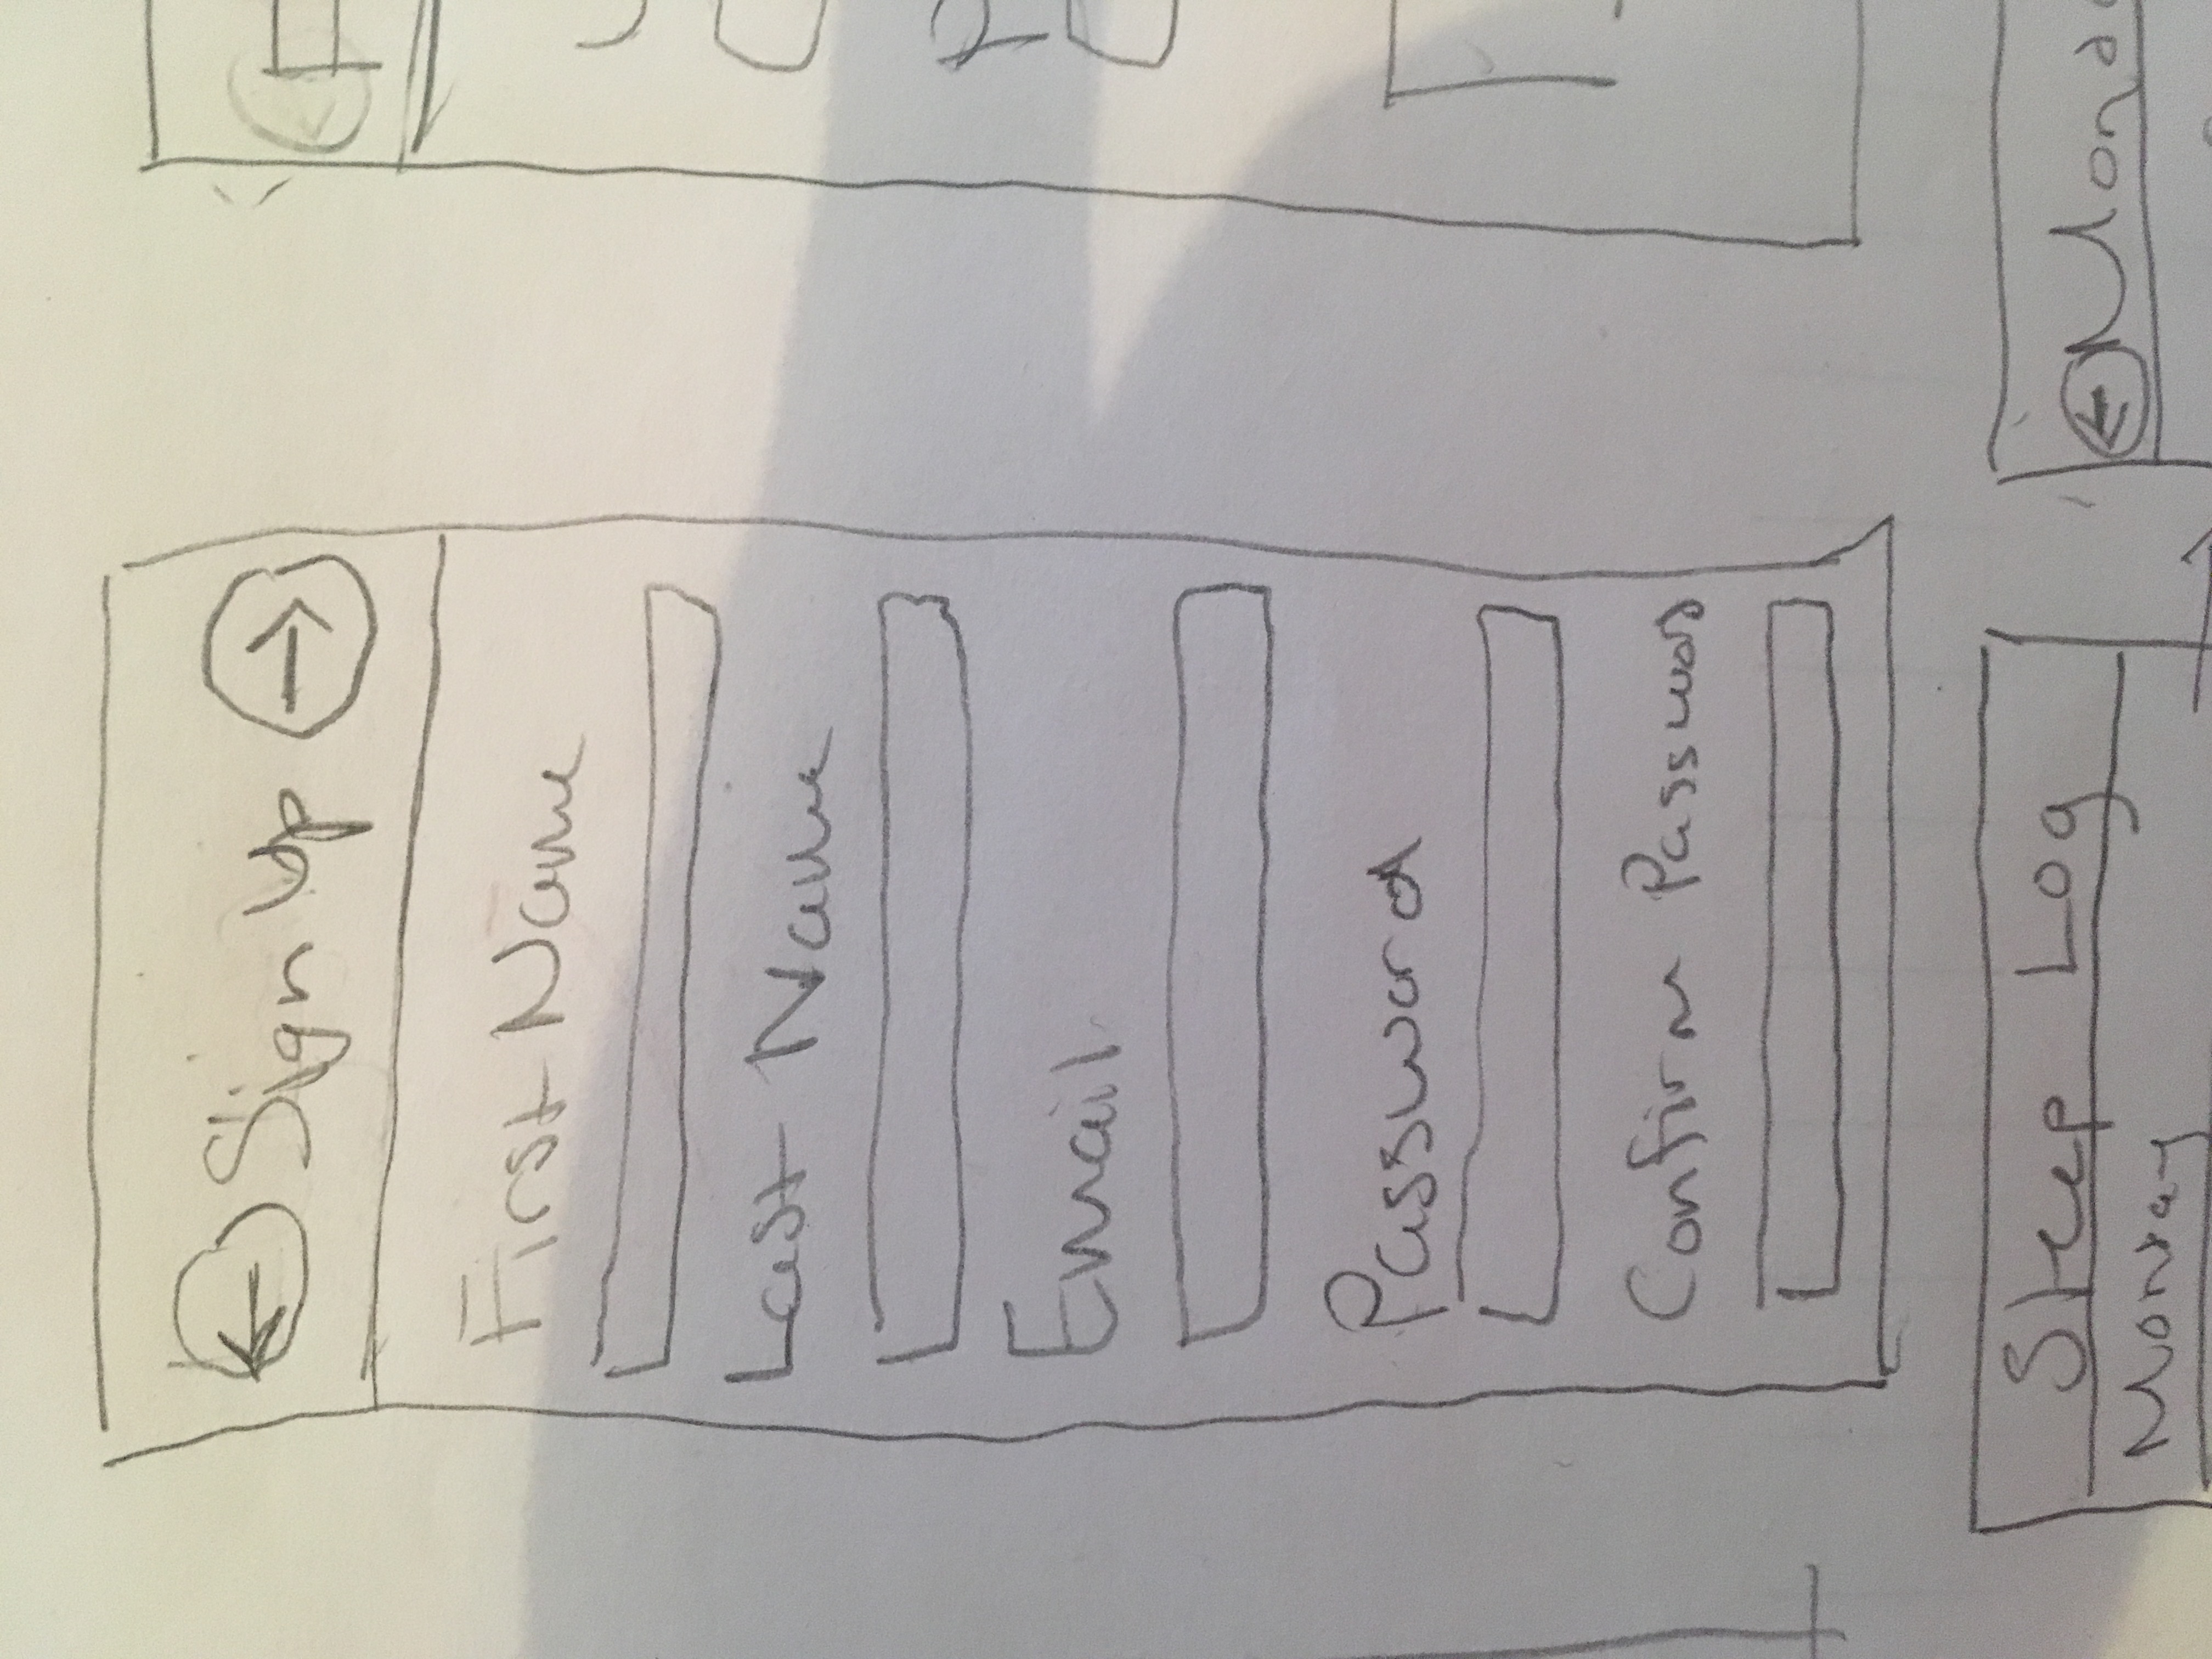 Sign Up
First Name
Last Name
Email
Password
Confirm Password
Log
Monday